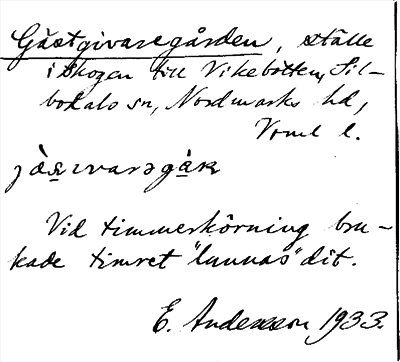 Gästgivaregården, ställe
i skogen till Vikebotten, Sil-
bodals sn, Nordmarks hd,
Verml l.
Vid timmerkörning bru-
kade timret "lunnas" dit.
E. Andersson 1933.